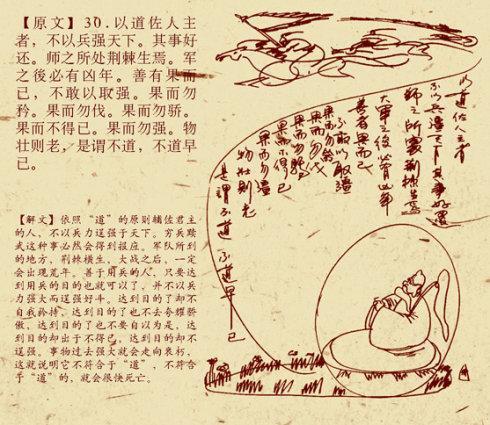 【原文】30.以道佐人主
者，不以兵强天下。其事好
还。师之所处荆棘生焉。军
之後必有凶年。善有果而
已，不敢以取强。果而勿
矜。果而勿伐。果而勿骄。
果而不得已。果而勿强。物
壮则老，是谓不道，不道早
已。
【解文】依照“道”的原则辅佐君主
的人，不以兵力逞强于天下。穷兵黩
武这种事必然会得到报应。军队所到
的地方，荆棘横生，大战之后，一定
会出现荒年。善于用兵的人，只要达
到用兵的目的也就可以了，并不以兵
力强大而逞强好斗。达到目的了却不
自我矜持，达到目的了也不去夸耀骄
傲，达到目的了也不要自以为是，达
到目的却出于不得已，达到目的却不
逞强。事物过去强大就会走向衰朽，
这就说明它不符合于“道”，不符合
于“道”的，就会很快死亡。
以道佐人主者
不以兵强天下其事好还
师之所处荆棘生焉
大军之后必有凶年
善者果而已
不敢以取强
果而勿矜
果而勿伐
果而勿骄
果而不得已
果而勿强
物壮则老
是谓不道不道早已